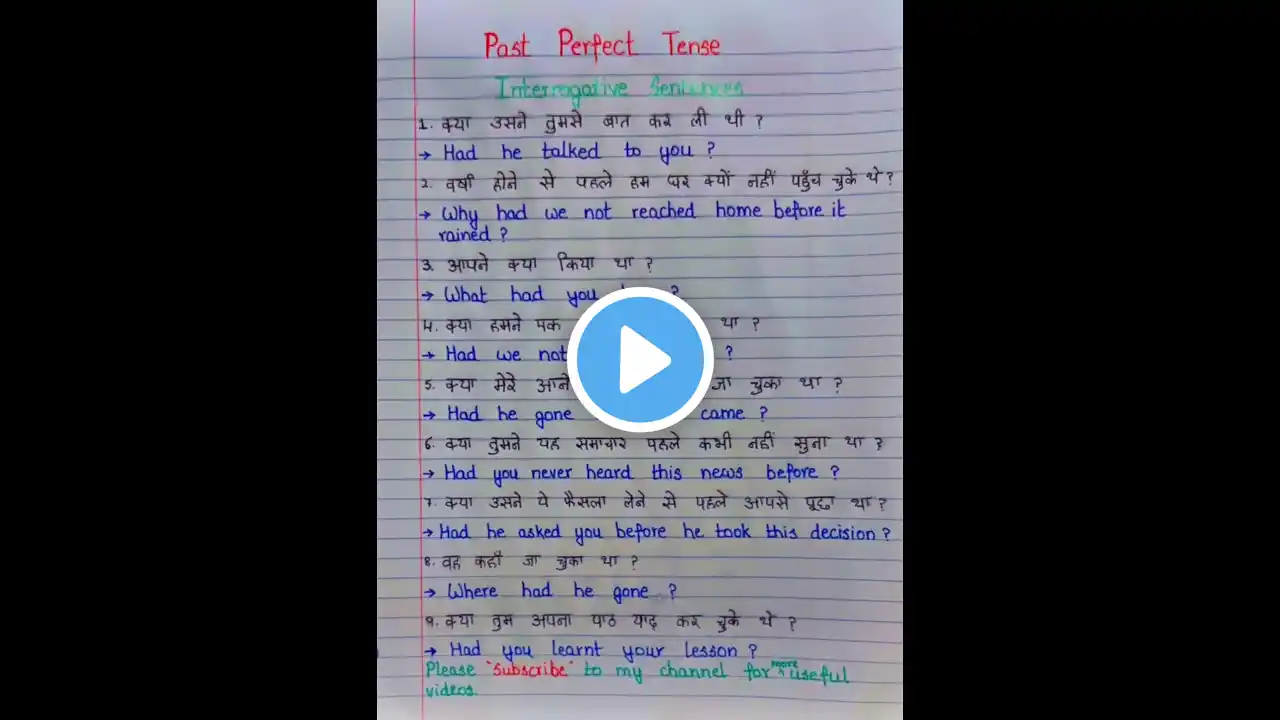 Past Perfect Tense
Interrogative Sentences
1. क्या उसने तुमसे बात कर ली थी ?
→ Had he talked to you ?
2. वर्षा होने से पहले हम घर क्यों नहीं पहुँच चुके थे ?
→ Why had we not reached home before it
rained ?
3. आपने क्या किया था ?
→ What had you ?
4. क्या हमने था ?
→ Had we not ?
5. क्या मेरे आने जा चुका था ?
→ Had he gone came ?
6. क्या तुमने यह समाचार पहले कभी नहीं सुना था ?
→ Had you never heard this news before ?
7. क्या उसने ये फैसला लेने से पहले आपसे पूछा था ?
→ Had he asked you before he took this decision ?
8. वह कहाँ जा चुका था ?
→ Where had he gone ?
9. क्या तुम अपना पाठ याद कर चुके थे ?
→ Had you learnt your lesson ?
Please "Subscribe" to my channel for more useful
videos